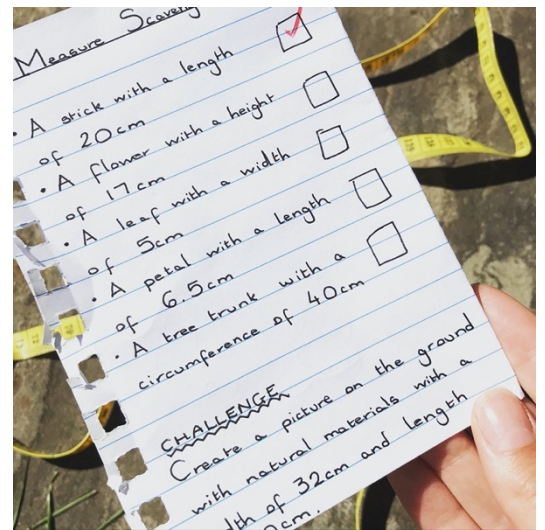 Measure
• A stick with a length
of 20cm
• A flower with a height
of 17cm
• A leaf with a width
of 5cm
• A petal with a length
of 6.5cm
• A tree trunk with a
circumference of 40cm
CHALLENGE
Create a picture on the ground
with natural materials with a
of 32cm and length